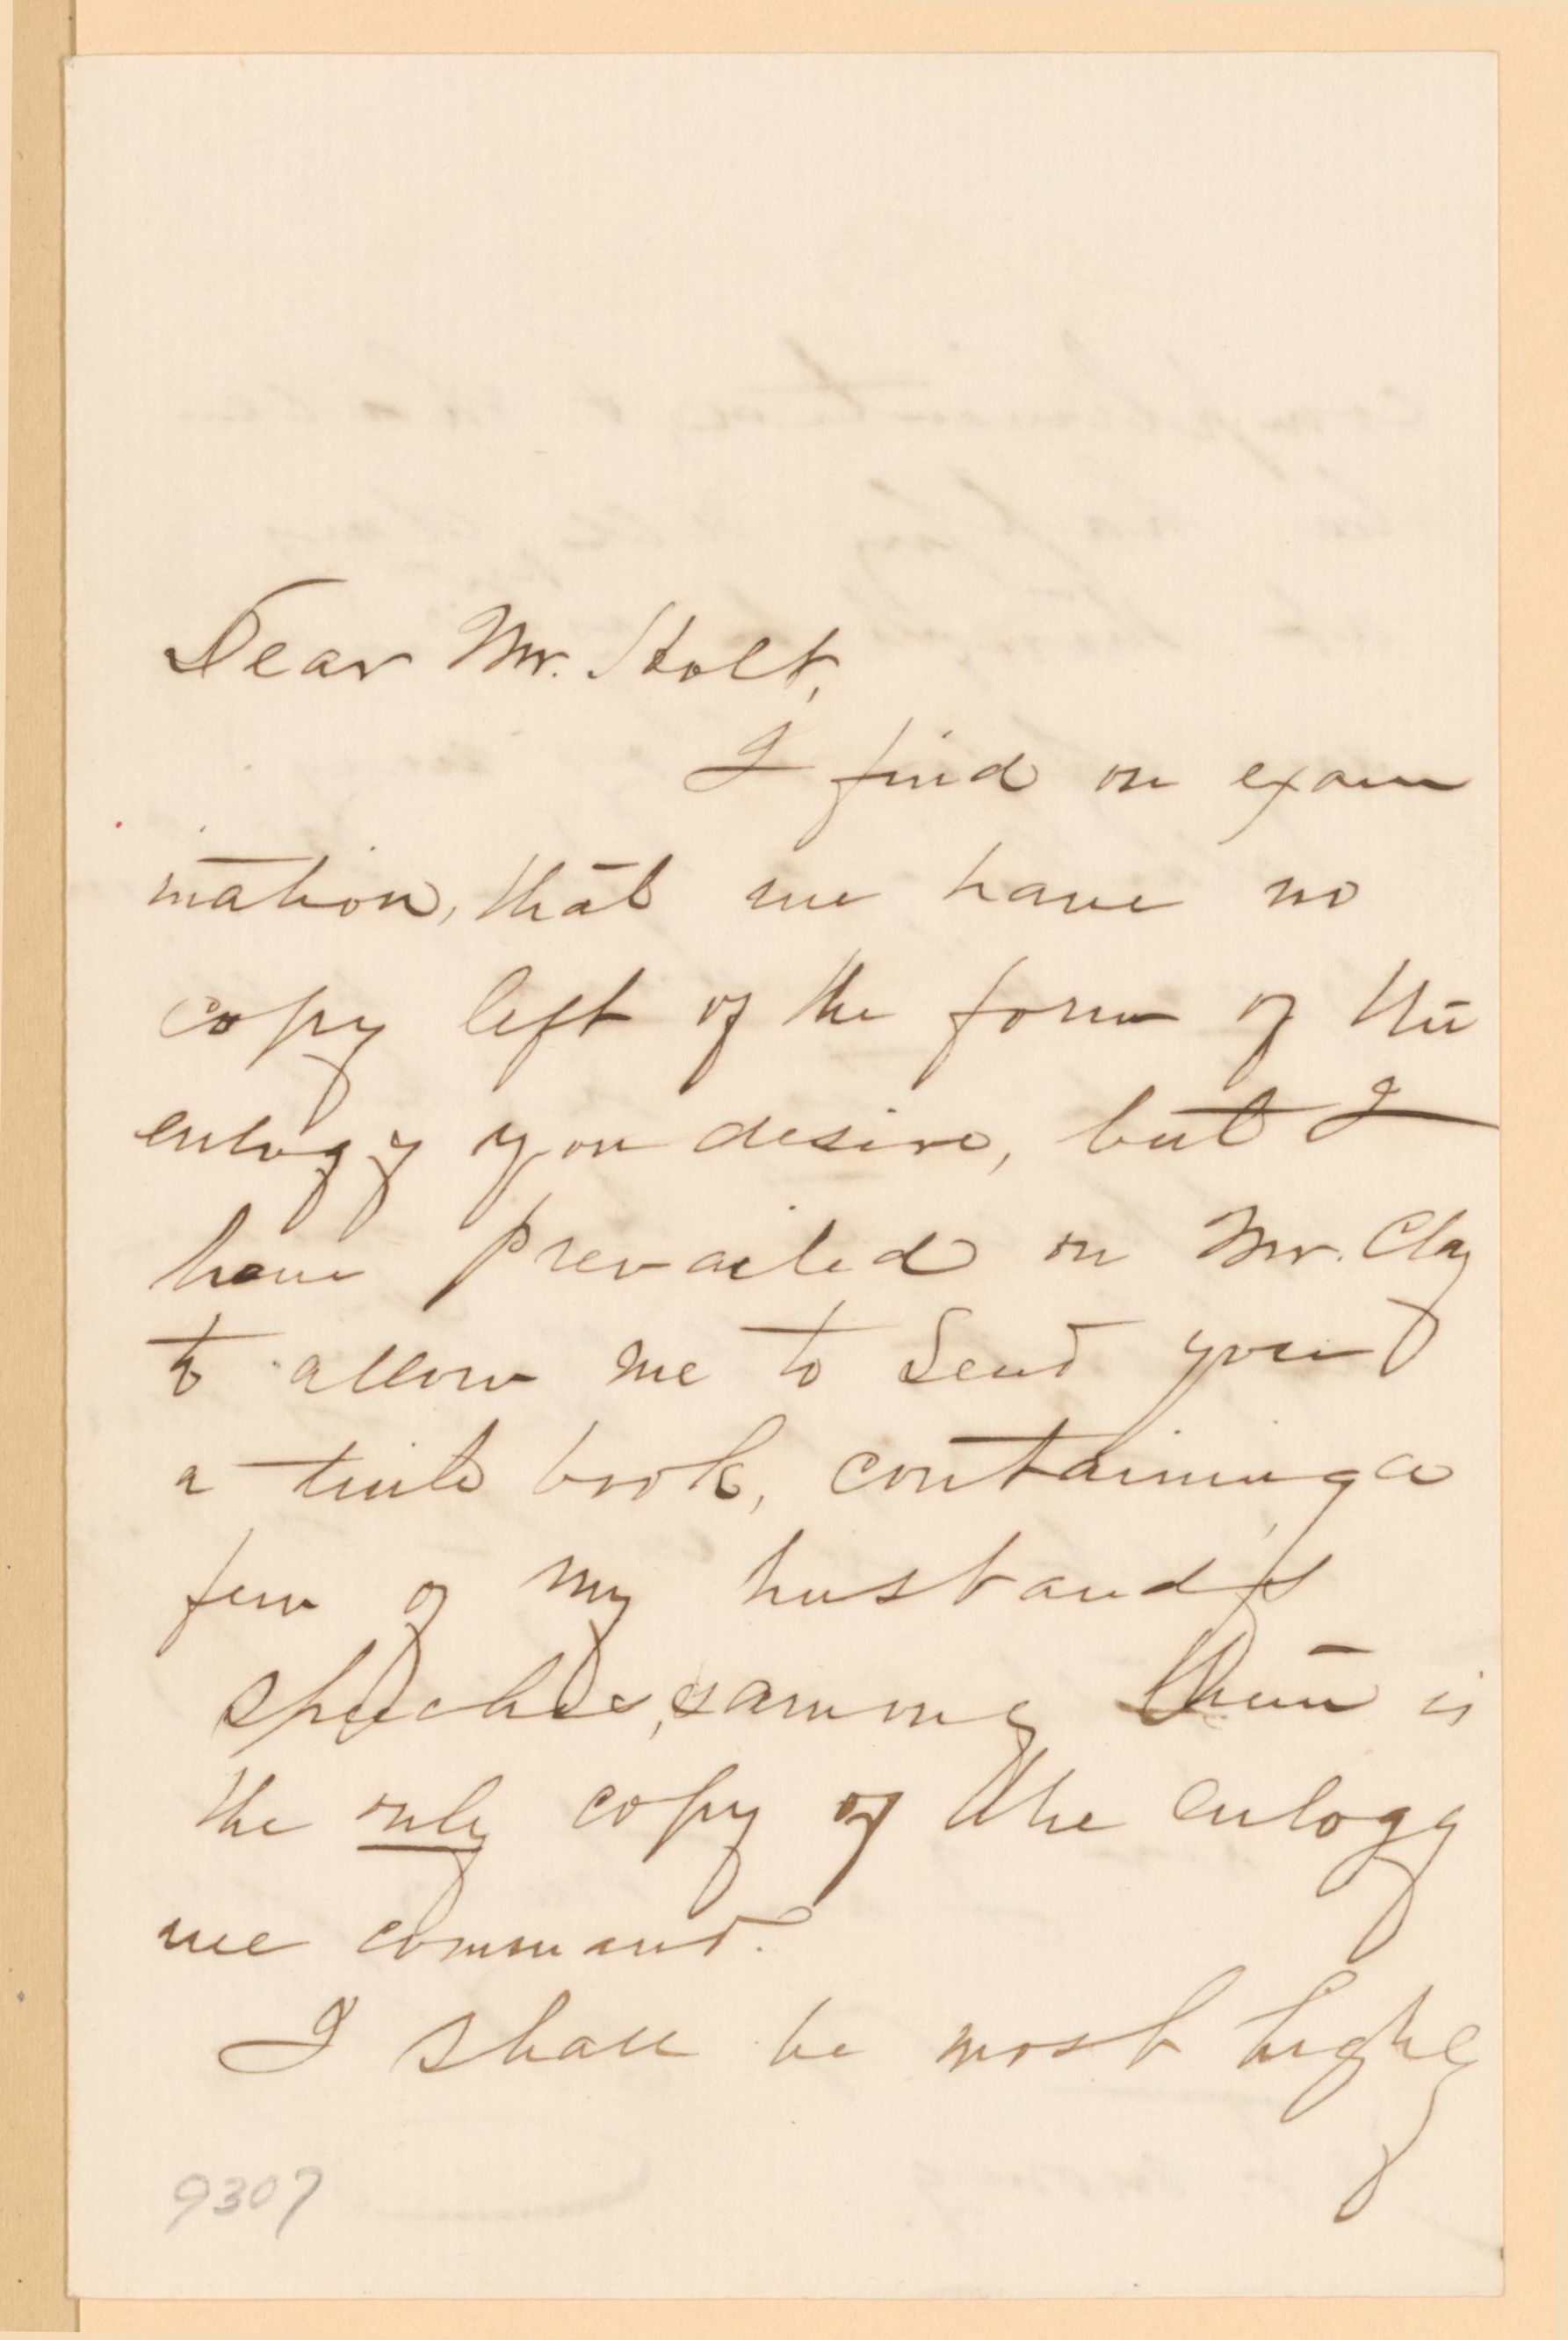 Dear Mr. Holt,
I find on exam
ination, that we have no
copy left of the form of the
eulogy you desire, but I
have prevailed on Mr. Clay
to allow me to send you
a little book, containing a
few of my husband's
speeches, & among them is
the only copy of the eulogy
we command.
I shall be most highly
9307